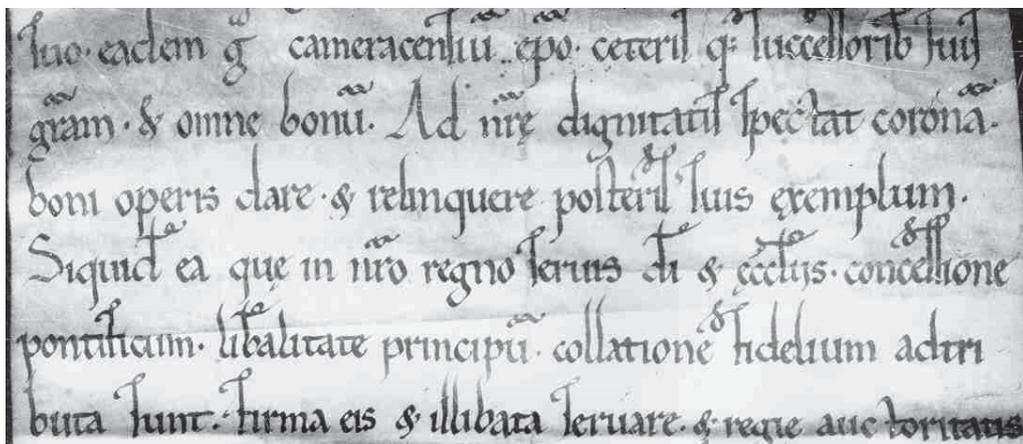 suo · eadem g̃ cameracensiũ ep̃o · ceterisq; successorib suis
grãm · & omne bonũ · Ad nr̃ę dignitatis spectat coronã ·
boni operis dare · & relinquere posteris suis ęxemplum ·
Siquid̃ ea quę in nr̃o regno seruis dĩ & ęccl̃iis · concessione
pontificum · lib̃alitate principũ · collatione fidelium adtri
buta sunt · firma eis & illibata seruare · & regię auctoritatis